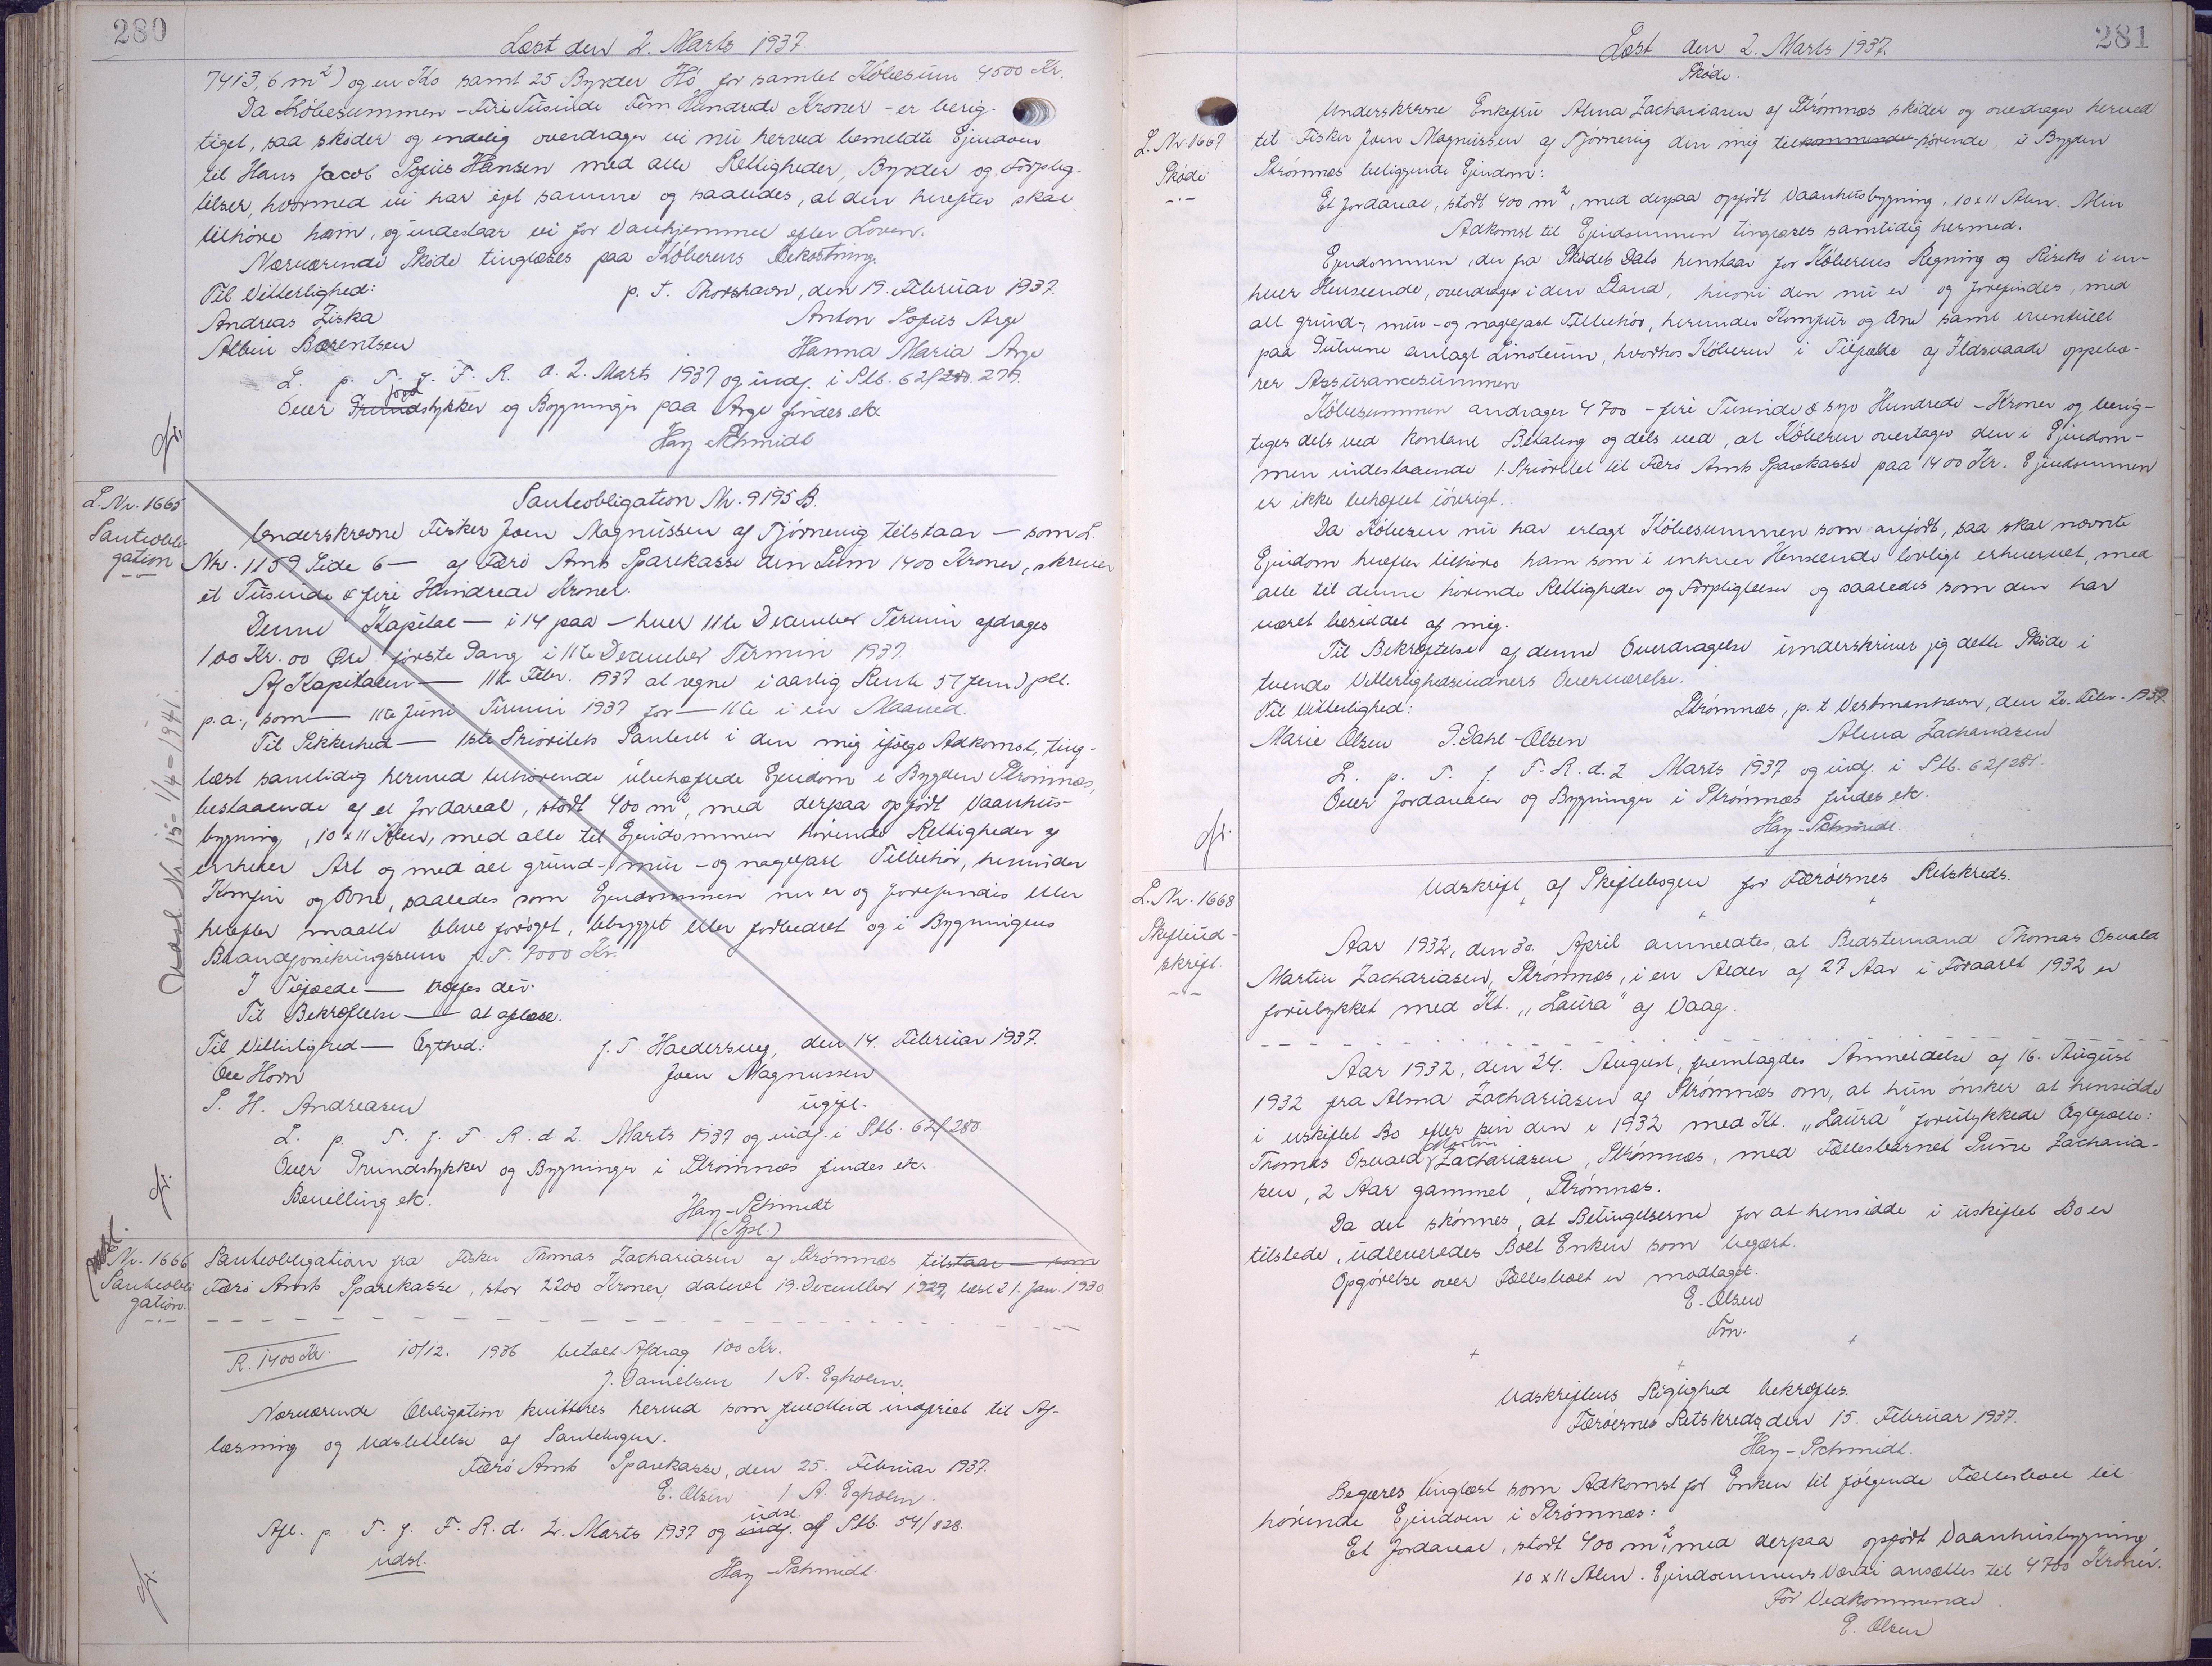 280
Læst den 2. Marts 1937.
7413,6 m²) og en Ko samt 25 Byrder Hø for samlet Købesum 4500 Kr.
Da Købesummen - Fire Tusinde Fem Hundrede Kroner - er berig-
tiget, saa skøder og endelig overdrager vi nu herved bemeldte Ejendom
til Hans Jacob Sofus Hansen med alle Rettigheder, Byrder og Forplig-
telser, hvormed vi har ejet samme og saaledes, at den herefter skal
tilhøre ham, og indestaar vi for Vanhjemmel efter Loven.
Nærværende Skøde tinglæses paa Køberens Bekostning.
Til Vitterlighed: p.t. Thorshavn, den 19. Februar 1937.
Andreas Ziska Anton Sofus Arge
Albin Barentsen Hanna Maria Arge
L. p. T. f. F. R. d. 2. Marts 1937 og indf. i Ptb. 62/280. 279.
Over Grundstykker og Bygninger paa Arge findes ek.
Jord
Hay Schmidt
L. Nr. 1665
Panteobli-
gation
Panteobligation Nr. 9195 B.
Underskrevne Fisker Joen Magnussen af Tjørnevig tilstaar — som L.
Nr. 1159 Side 6 — af Færø Amts Sparekasse den Sum 1400 Kroner, skriver
et Tusinde & fire Hundrede Kroner.
Denne Kapital — i 14 paa — hver 11te December Termin afdrages
100 Kr. 00 Øre første Gang i 11te December Termin 1937.
Af Kapitalen — 11te Febr. 1937 at regne i aarlig Rente 5 (fem) pCt.
p.a., som — 11te Juni Termin 1937 for — 11te i en Maaned.
Til Sikkerhed — 1ste Prioritets Panteret i den mig ifølge Adkomst, ting-
læst samtidig hermed tilhørende ubehæftede Ejendom i Bygden Strømnæs,
bestaaende af et Jordareal, stort 400 m², med derpaa opført Vaanhus-
bygning, 10 x 11 Alen, med alle til Ejendommen hørende Rettigheder af
enhver Art og med alt grund-, mur- og nagelfast Tilbehør, herunder
Komfur og Ovne, saaledes som Ejendommen nu er og forefindes eller
herefter maatte blive forøget, bebygget eller forbedret og i Bygningens
Brandforsikringssum p.T. 7000 Kr.
I Tilfælde — træffes der.
Til Bekræftelse — at aflæse.
Til Vitterlighed — Ægthed: p.T Haldersvig, den 14. Februar 1937.
Ole Horn Joen Magnussen
P. H. Andreasen ugift.
L. p. T. f. F. R. d 2. Marts 1937 og indf. i Ptb. 62/280
Over Grundstykker og Bygninger i Strømnæs findes ek.
Bevilling ek. Hay-Schmidt
(Spl.)
Udsl. Nr. 15- 1/4 - 1941.
udsl.
Nr. 1666
Panteobli-
gation.
Panteobligation fra Fisker Thomas Zachariasen af Strømnæs tilstaar — som
Færø Amts Sparekasse, stor 2200 Kroner, dateret 19. December 1929, læst 21. Jan. 1930
R. 1400 Kr. 10/12. 1936 betalt Afdrag 100 Kr.
J. Danielsen / A. Egholm.
Nærværende Obligation kvitteres herved som fuldtud indfriet til Af-
læsning og Udslettelse af Pantebogen.
Færø Amts Sparekasse, den 25. Februar 1937.
E. Olsen / A. Egholm.
udsl.
Afl. p. T. f. F. R. d. 2. Marts 1937 og indf. af Ptb. 54/828.
udsl. Hay-Schmidt.
281
Læst den 2. Marts 1937.
L. Nr. 1667
Skøde
Skøde.
Underskrevne Enkefru Alma Zachariasen af Strømnæs skøder og overdrager herved
til Fisker Joen Magnussen af Tjørnevig den mig tilkommende hørende i Bygden
Strømnæs beliggende Ejendom:
Et Jordareal, stort 400 m², med derpaa opført Vaanhusbygning, 10 x 11 Alen. Min
Adkomst til Ejendommen tinglæses samtidig hermed.
Ejendommen, der fra Skødets Dato henstaar for Køberens Regning og Risiko i en-
hver Henseende, overdrages i den Stand, hvori den nu er og forefindes, med
alt grund-, mur- og nagelfast Tilbehør, herunder Komfur og Ovne samt eventuelt
paa Gulvene anlagt Linoleum, hvorhos Køberen i Tilfælde af Ildsvaade oppebæ-
rer Assurancesummen
Købesummen andrager 4700 - fire Tusinde & syv Hundrede - Kroner og berig-
tiges dels ved kontant Betaling og dels ved, at Køberen overtager den i Ejendom-
men indestaaende 1. Prioritet til Færø Amts Sparekasse paa 1400 Kr. Ejendommen
er ikke behæftet iøvrigt.
Da Køberen nu har erlagt Købesummen som anført, saa skal nævnte
Ejendom herefter tilhøre ham som i enhver Henseende lovligt erhvervet, med
alle til denne hørende Rettigheder og Forpligtelser og saaledes som den har
været besiddet af mig.
Til Bekræftelse af denne Overdragelse underskriver jeg dette Skøde i
tvende Vitterlighedsvidners Overværelse.
Til Vitterlighed: Strømnæs, p.t. Vestmanhavn, den 20. Febr. 1937
Marie Olsen P. Dahl-Olsen Alma Zachariasen
L. p. T. f. F. R. d. 2 Marts 1937 og indf. i Ptb. 62/281.
Over Jordarealer og Bygninger i Strømnæs findes ek.
Hay-Schmidt.
L. Nr. 1668
Skifteud-
skrift.
Udskrift af Skiftebogen for Færøernes Retskreds.
Aar 1932, den 30. April anmeldtes, at Bedstemand Thomas Osvald
Martin Zachariasen, Strømnæs, i en Alder af 27 Aar i Foraaret 1932 er
forulykket med Kt. „Laura" af Vaag.
Aar 1932, den 24. August, fremlagdes Anmeldelse af 16. August
1932 fra Alma Zachariasen af Strømnæs om, at hun ønsker at hensidde
i uskiftet Bo efter sin den i 1932 med Kt. „Laura" forulykkede Ægtefælle:
Martin
Thomas Osvald Zachariasen, Strømnæs, med Fællesbarnet Sune Zacharia-
sen, 2 Aar gammel, Strømnæs.
Da det skønnes, at Betingelserne for at hensidde i uskiftet Bo er
tilstede, udleveredes Boet Enken som begært.
Opgørelse over Fællesboet er modtaget.
E. Olsen
Fm.
Udskriftens Rigtighed bekræftes.
Færøernes Retskreds, den 15. Februar 1937.
Hay-Schmidt.
Begæres tinglæst som Adkomst for Enken til følgende Fællesboet til-
hørende Ejendom i Strømnæs:
Et Jordareal, stort 400 m², med derpaa opført Vaanhusbygning
10 x 11 Alen. Ejendommens Værdi ansættes til 4700 Kroner.
For Vedkommende
E. Olsen